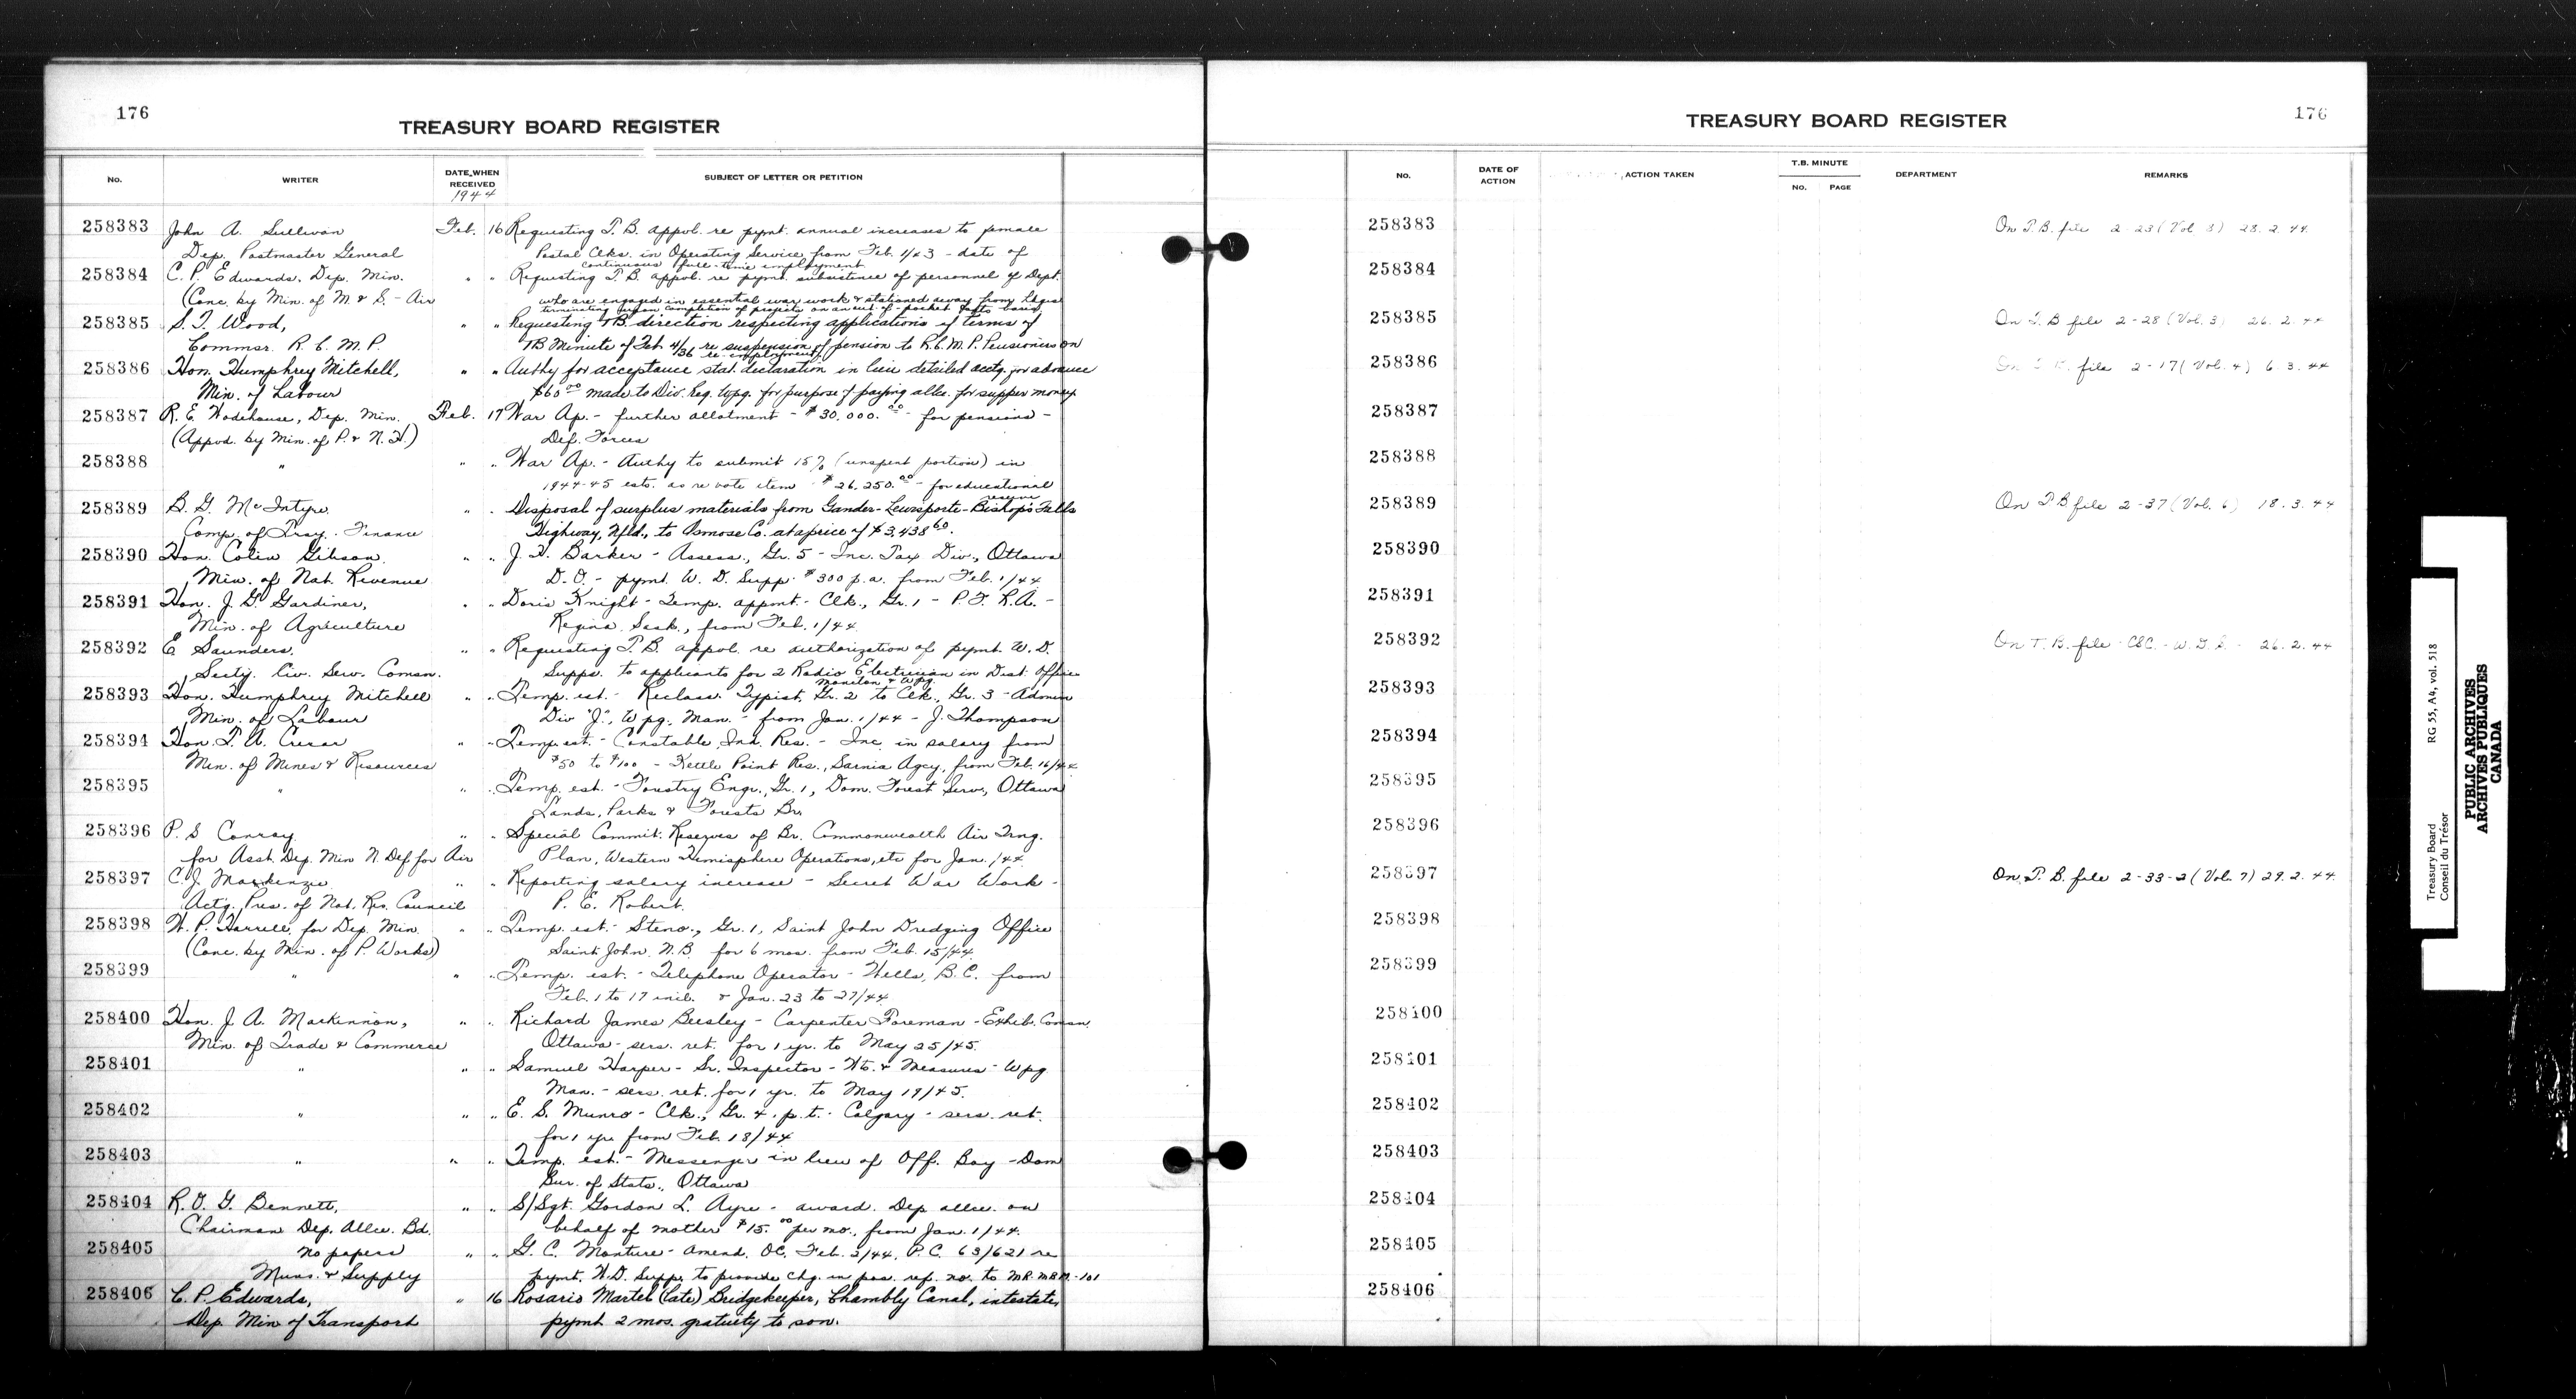 176
TREASURY BOARD REGISTER
No. WRITER DATE WHEN RECEIVED SUBJECT OF LETTER OR PETITION
1944
258383 John A. Sullivan Feb. 16 Requesting T. B. appvl. re pymt. annual increases to female
Dep. Postmaster General Postal Clks. in Operating Service, from Feb. 1/43 - date of
continuous full-time employment
258384 C. P. Edwards, Dep. Min. " " Requesting T. B. appvl. re pymt. subsistence of personnel of Dept.
(Conc. by Min. of M & S. - Air who are engaged in essential war work & stationed away from Hdqrs
terminating upon completion of projects on an out-of-pocket basis
258385 S. T. Wood, " " Requesting TB. direction respecting applications of terms of
Commsr. R. C. M. P. TB Minute of Feb 4/36 re suspension of pension to R.C.M.P. Pensioners on
re-employment
258386 Hon. Humphrey Mitchell, " " Authy for acceptance stat. declaration in lieu detailed acctg. for advance
Min. of Labour $60 00 made to Div. Reg. Wpg. for purpose of paying allce. for supper money
258387 R. E. Wodehouse, Dep. Min. Feb. 17 War Ap. - further allotment - $30,000.00 - for pensions -
(Appvd. by Min. of P. & N. H.) Def. Forces
258388 " " " War Ap. - Authy to submit 15% (unspent portion) in
1944-45 ests. as revote item $26,250.00 - for educational
reserve
258389 B. G. McIntyre " " Disposal of surplus materials from Gander-Lewisporte-Bishop's Falls
Comp. of Trsy. Finance Highway, Nfld., to Osmose Co. at a price of $3,438 60.
258390 Hon. Colin Gibson " " J. H. Barker - Assess., Gr. 5 - Inc. Tax Div., Ottawa
Min. of Nat. Revenue D. O. - pymt. W. D. Supp. $300 p.a. from Feb. 1/44
258391 Hon. J. G. Gardiner, " " Doris Knight - Temp. appmt. - Clk., Gr. 1 - P. F. R.A. -
Min. of Agriculture Regina Sask., from Feb. 1/44
258392 E Saunders, " " Requesting T. B. appvl. re authorization of pymt. W. D.
Secty. Civ. Serv. Comsn. Supps. to applicants for 2 Radio Electrician in Dist. Offices
Moncton & Wpg.
258393 Hon. Humphrey Mitchell " " Temp. est. - Reclass. Typist, Gr. 2 to Clk., Gr. 3 - Admin
Min. of Labour Div "J", Wpg. Man. - from Jan. 1/44 - J. Thompson
258394 Hon. T. A. Crerar " " Temp. est. - Constable, Ind. Res. - Inc. in salary from
Min. of Mines & Resources $50 to $100 - Kettle Point Res., Sarnia Agcy, from Feb. 16/44
258395 " " " Temp. est. - Forestry Engr., Gr. 1, Dom. Forest Serv., Ottawa
Lands, Parks & Forests Br.
258396 P. S Conroy " " Special Commit. Reserves of Br. Commonwealth Air Trng.
for Asst. Dep. Min N. Def for Air Plan, Western Hemisphere Operations, etc for Jan. /44
258397 C. J. Mackenzie " " Reporting salary increase - Secret War Work -
Actg. Pres. of Nat. Res. Council P. E. Robert.
258398 H. P. Harrell, for Dep. Min. " " Temp. est. - Steno., Gr. 1, Saint John Dredging Office
(Conc. by Min. of P. Works) Saint John, N. B. for 6 mos. from Feb. 15/44
258399 " " " Temp. est. - Telephone Operator - Wells, B. C. from
Feb. 1 to 17 incl. & Jan. 23 to 27/44
258400 Hon. J. A. Mackinnon, " " Richard James Beesley - Carpenter Foreman - Exhib. Comsn.
Min. of Trade & Commerce Ottawa - servs. ret. for 1 yr. to May 25/45.
258401 " " " Samuel Harper - Sr. Inspector - Wts. & Measures - Wpg
Man. - servs. ret. for 1 yr. to May 19/45.
258402 " " " E. S. Munro - Clk., Gr. 4. p. t. - Calgary - servs. ret.
for 1 yr. from Feb. 18/44
258403 " " " Temp. est. - Messenger in lieu of Off. Boy - Dom
Bur. of Stats., Ottawa
258404 R. O. G. Bennett, " " S/Sgt. Gordon L. Ayre - award. Dep. allce. on
Chairman Dep. Allce. Bd. behalf of mother $15.00 per mo., from Jan. 1/44.
258405 no papers " " G. C. Monture - Amend. OC. Feb. 2/44. P.C. 63/621 re
Muns. & Supply pymt. W.D. Supp. to provide chg. in pos. ref. no. to MR. MRM-101
258406 C. P. Edwards, " 16 Rosario Martel (late) Bridgekeeper, Chambly Canal, intestate,
Dep. Min of Transport pymt 2 mos. gratuity to son.
TREASURY BOARD REGISTER
176
No. DATE OF ACTION ACTION TAKEN T.B. MINUTE No. PAGE DEPARTMENT REMARKS
258383 On T. B. file 2-23 (Vol 3) 28. 2. 44.
258384
258385 On T. B file 2-28 (Vol. 3) 26. 2. 44
258386 On T. B. file 2-17 (Vol. 4) 6. 3. 44
258387
258388
258389 On T B file 2-37 (Vol. 6) 18. 3. 44
258390
258391
258392 On T. B. file CSC - W. D. S. - 26. 2. 44
258393
258394
258395
258396
258397 On T. B. file 2-33-2 (Vol. 7) 29. 2. 44.
258398
258399
258400
258401
258402
258403
258404
258405
258406
Treasury Board RG 55, A4, vol. 518
Conseil du Trésor
PUBLIC ARCHIVES
ARCHIVES PUBLIQUES
CANADA